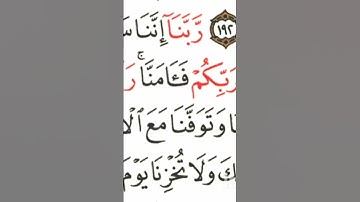 ١٩٢ رَّبَّنَآ إِنَّنَا سَ
رَبِّكُمْ فَـَٔامَنَّا ۚ رَ
ا وَتَوَفَّنَا مَعَ ٱلْأ
كَ وَلَا تُخْزِنَا يَوْمَ